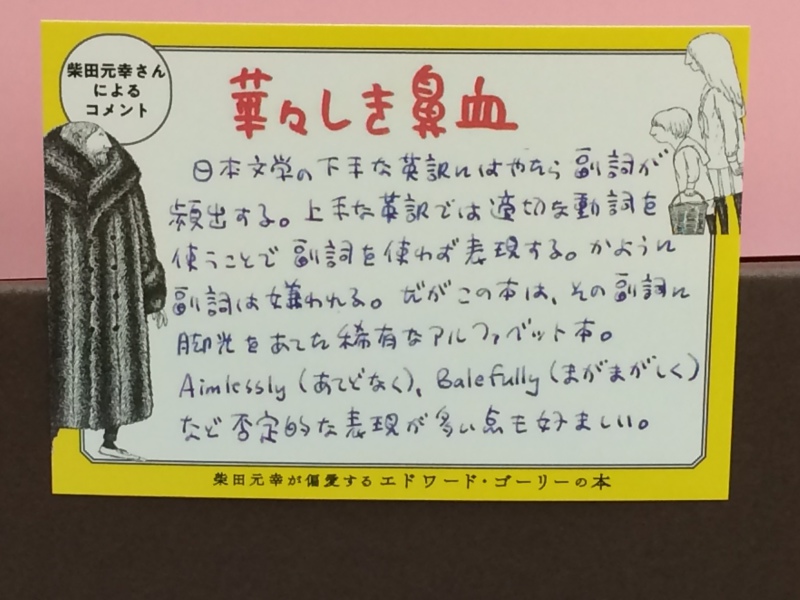 柴田元幸さん
による
コメント
華々しき鼻血
日本文学の下手な英訳にはやたら副詞が
頻出する。上手な英訳では適切な動詞を
使うことで副詞を使わず表現する。かように
副詞は嫌われる。だがこの本は、その副詞に
脚光をあてた稀有なアルファベット本。
Aimlessly (あてどなく)、Balefully (まがまがしく)
など否定的な表現が多い点も好ましい。
柴田元幸が偏愛するエドワード・ゴーリーの本